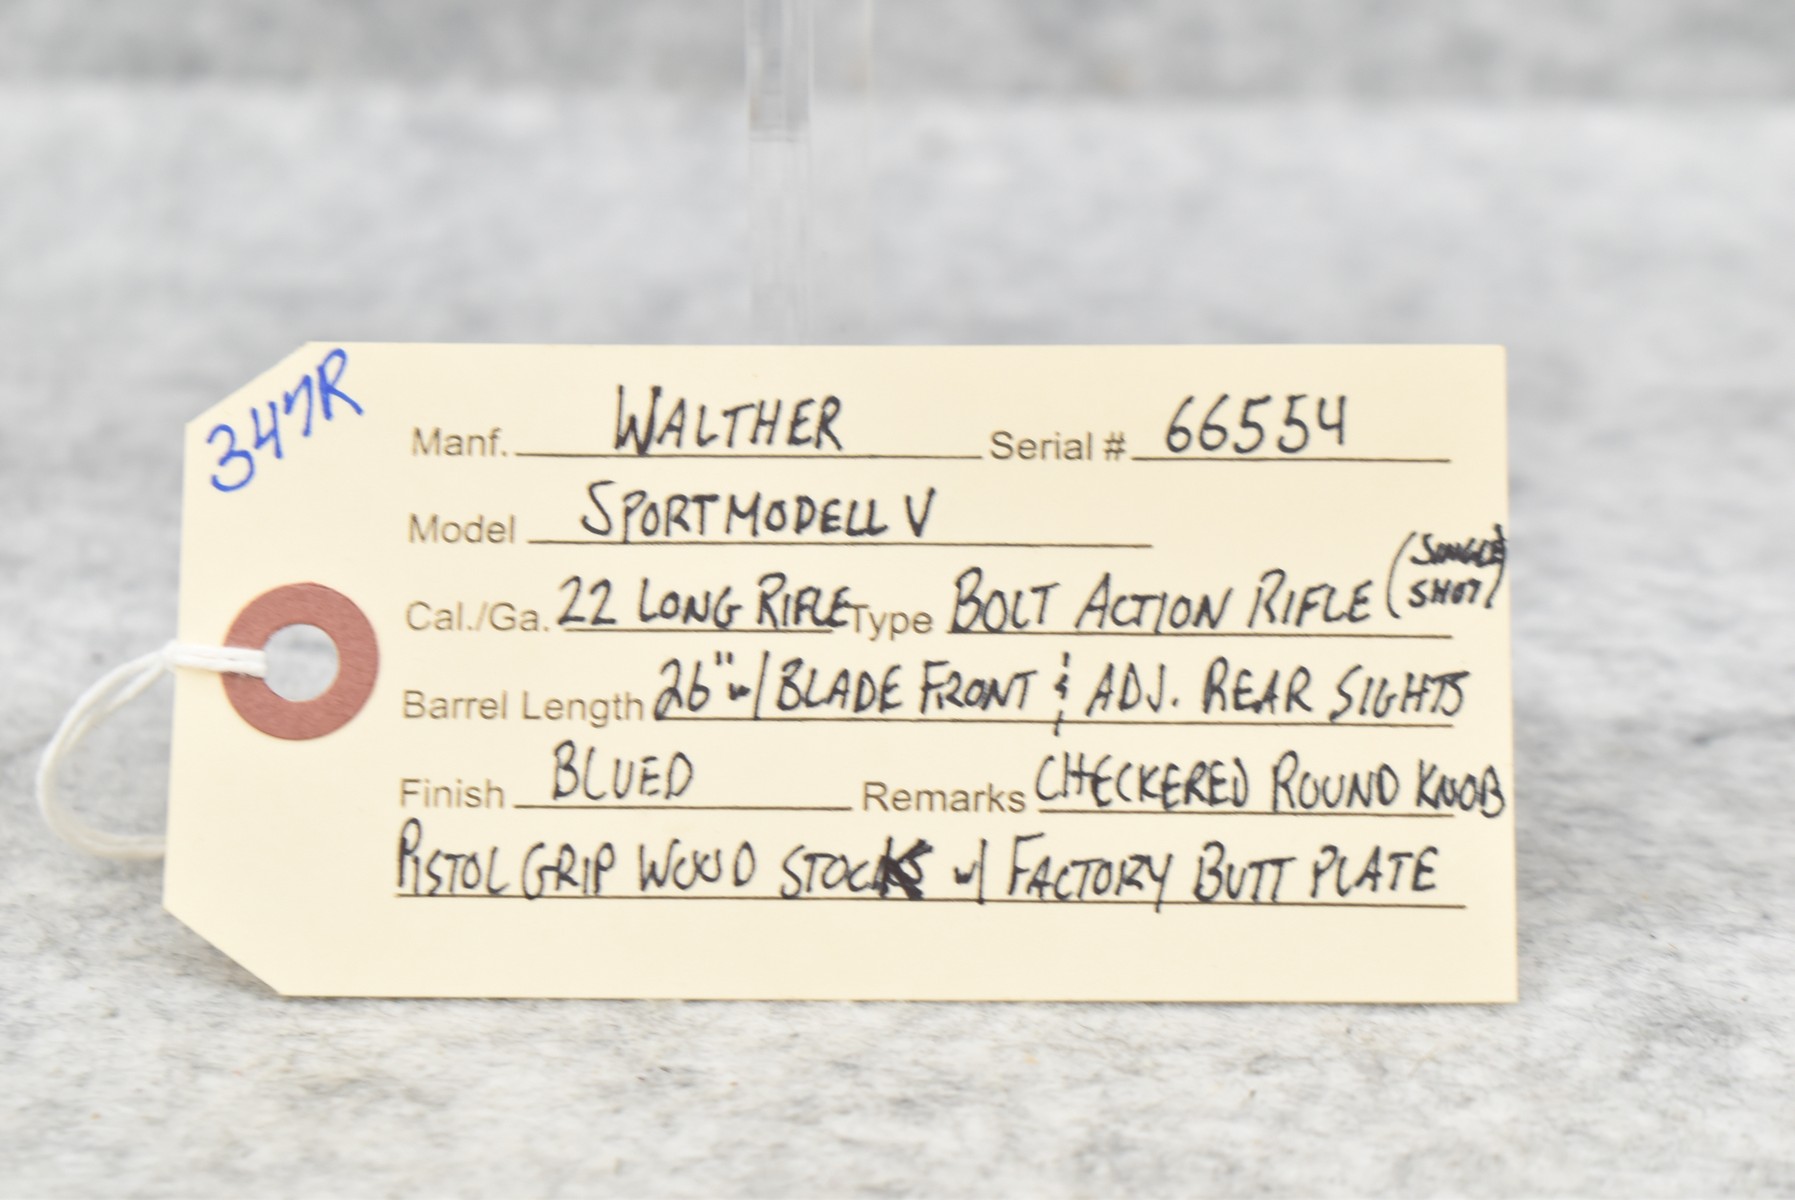 347R
Manf. WALTHER Serial # 66554
Model SPORTMODELL V
Cal./Ga. 22 LONG RIFLE Type BOLT ACTION RIFLE (SINGLE SHOT)
Barrel Length 26" w/ BLADE FRONT & ADJ. REAR SIGHTS
Finish BLUED Remarks CHECKERED ROUND KNOB
PISTOL GRIP WOOD STOCK w/ FACTORY BUTT PLATE